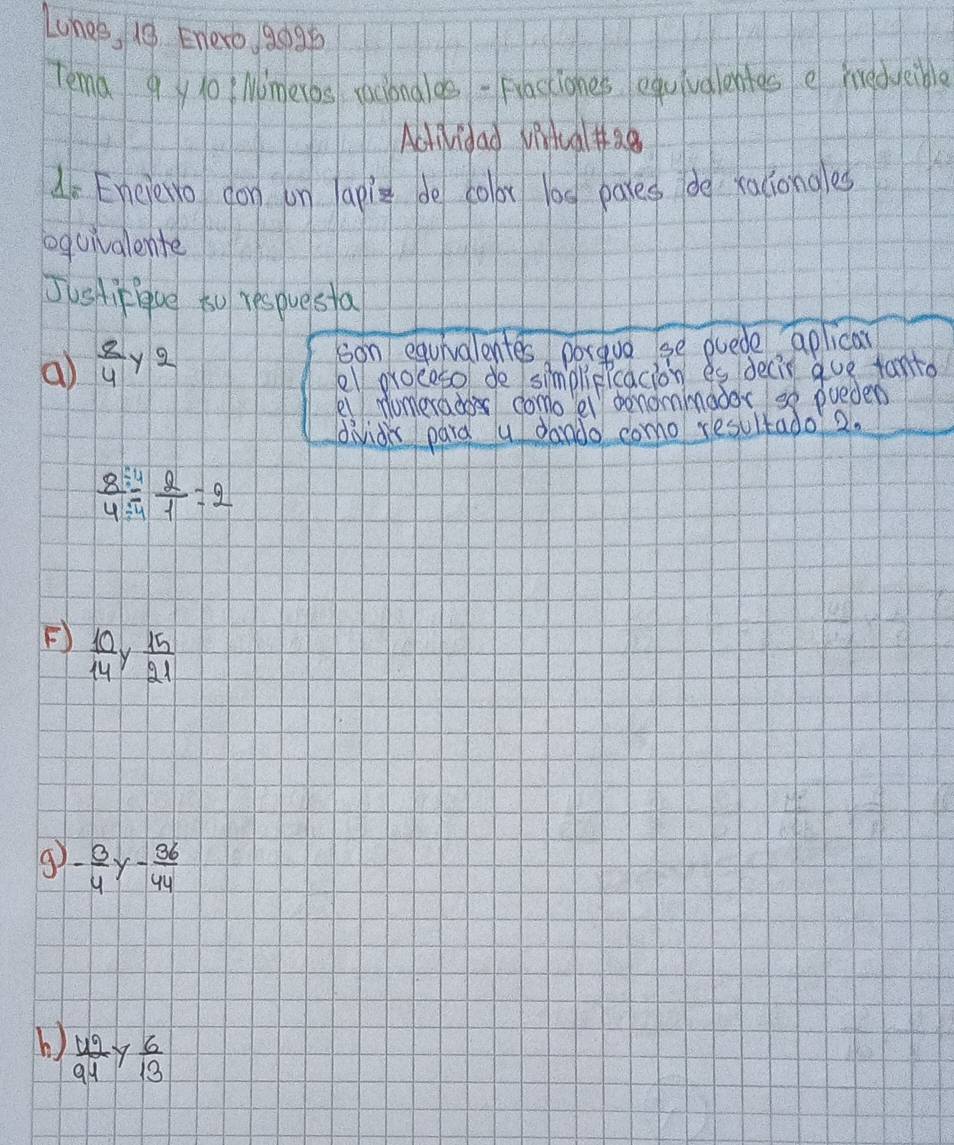 Lunes, 13 Enero, 2025
Tema 9 y 10: Números racionales - Fracciones equivalentes e irreducible
Actividad virtual #28
1. Encierro con un lapiz de color los pares de racionales
equivalente
Justifique su respuesta
a) 8/4 y 2
son equivalentes porque se puede aplicar
el proceso de simplificación es decir que tanto
el numerador como el denominador se pueden
dividir para 4 dando como resultado 2.
8÷4/4÷4 = 2/1 = 2
F) 10/14 y 15/21
g) -3/4 y -36/44
h) 42/91 y 6/13